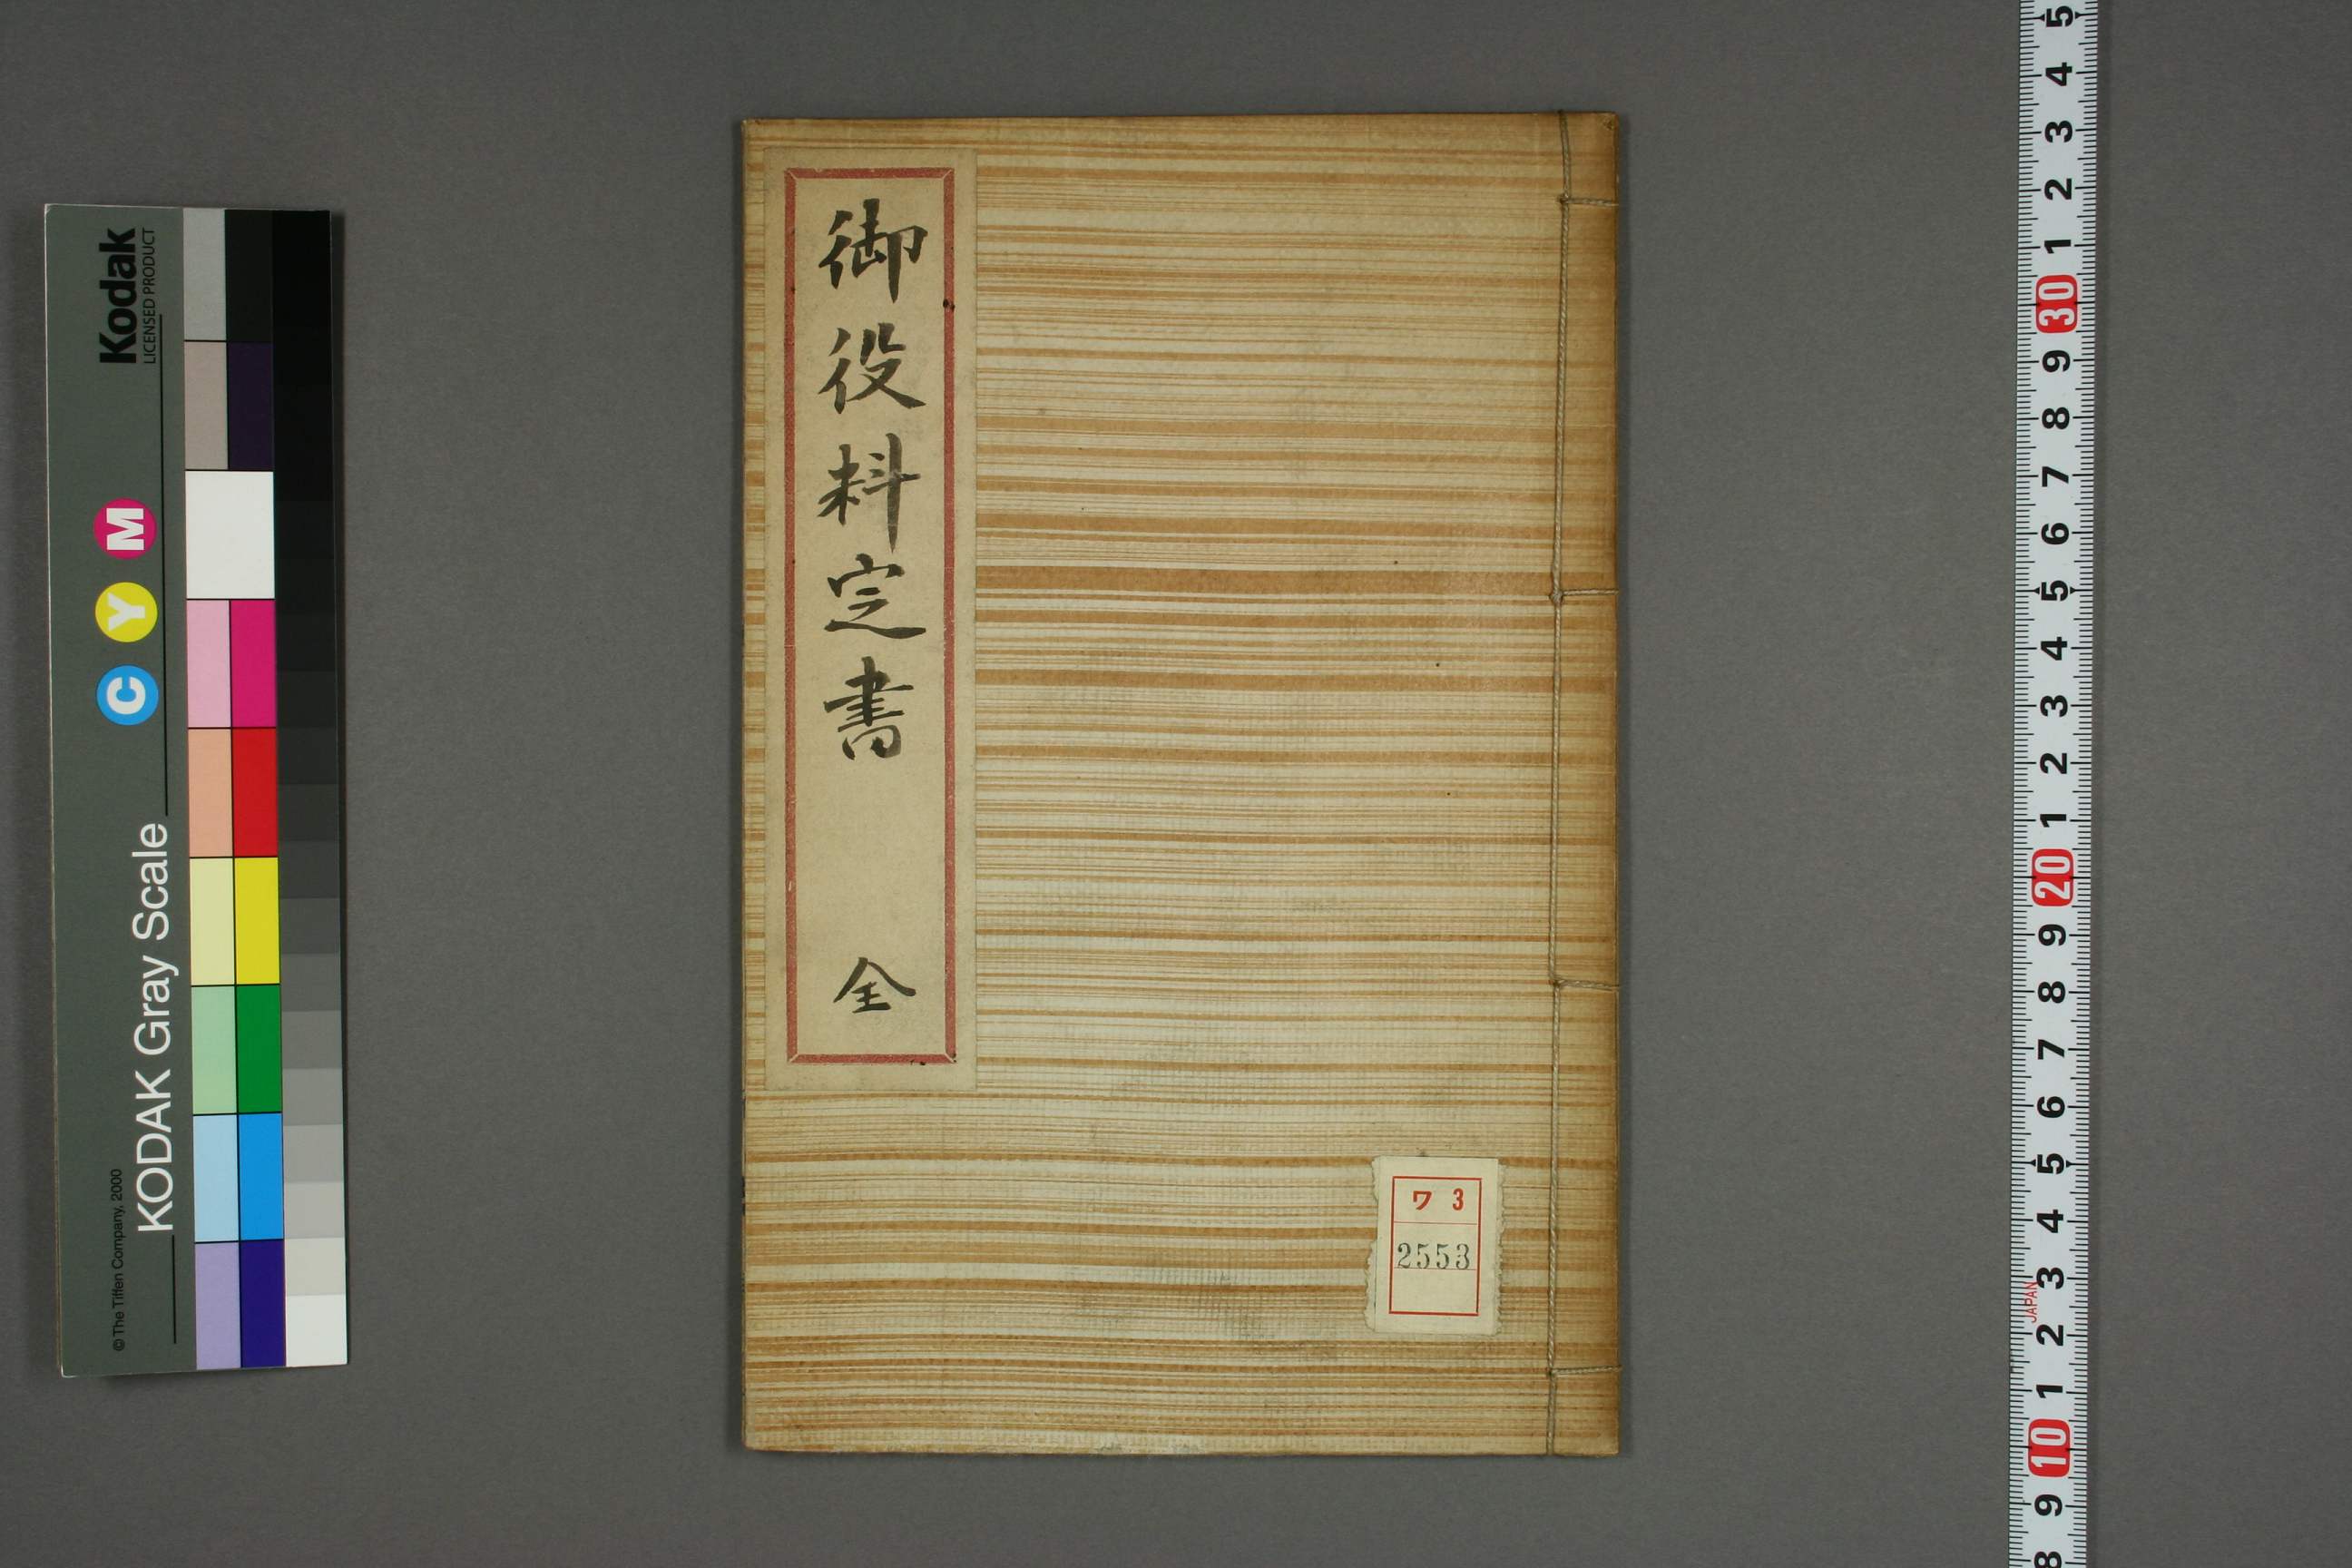 御役料定書 全
ワ 3
2553
Kodak
LICENSED PRODUCT
C Y M
KODAK Gray Scale
© The Tiffen Company, 2000
5
4
3
2
1
30
9
8
7
6
5
4
3
2
1
20
9
8
7
6
5
4
3
JAPAN
2
1
10
9
8